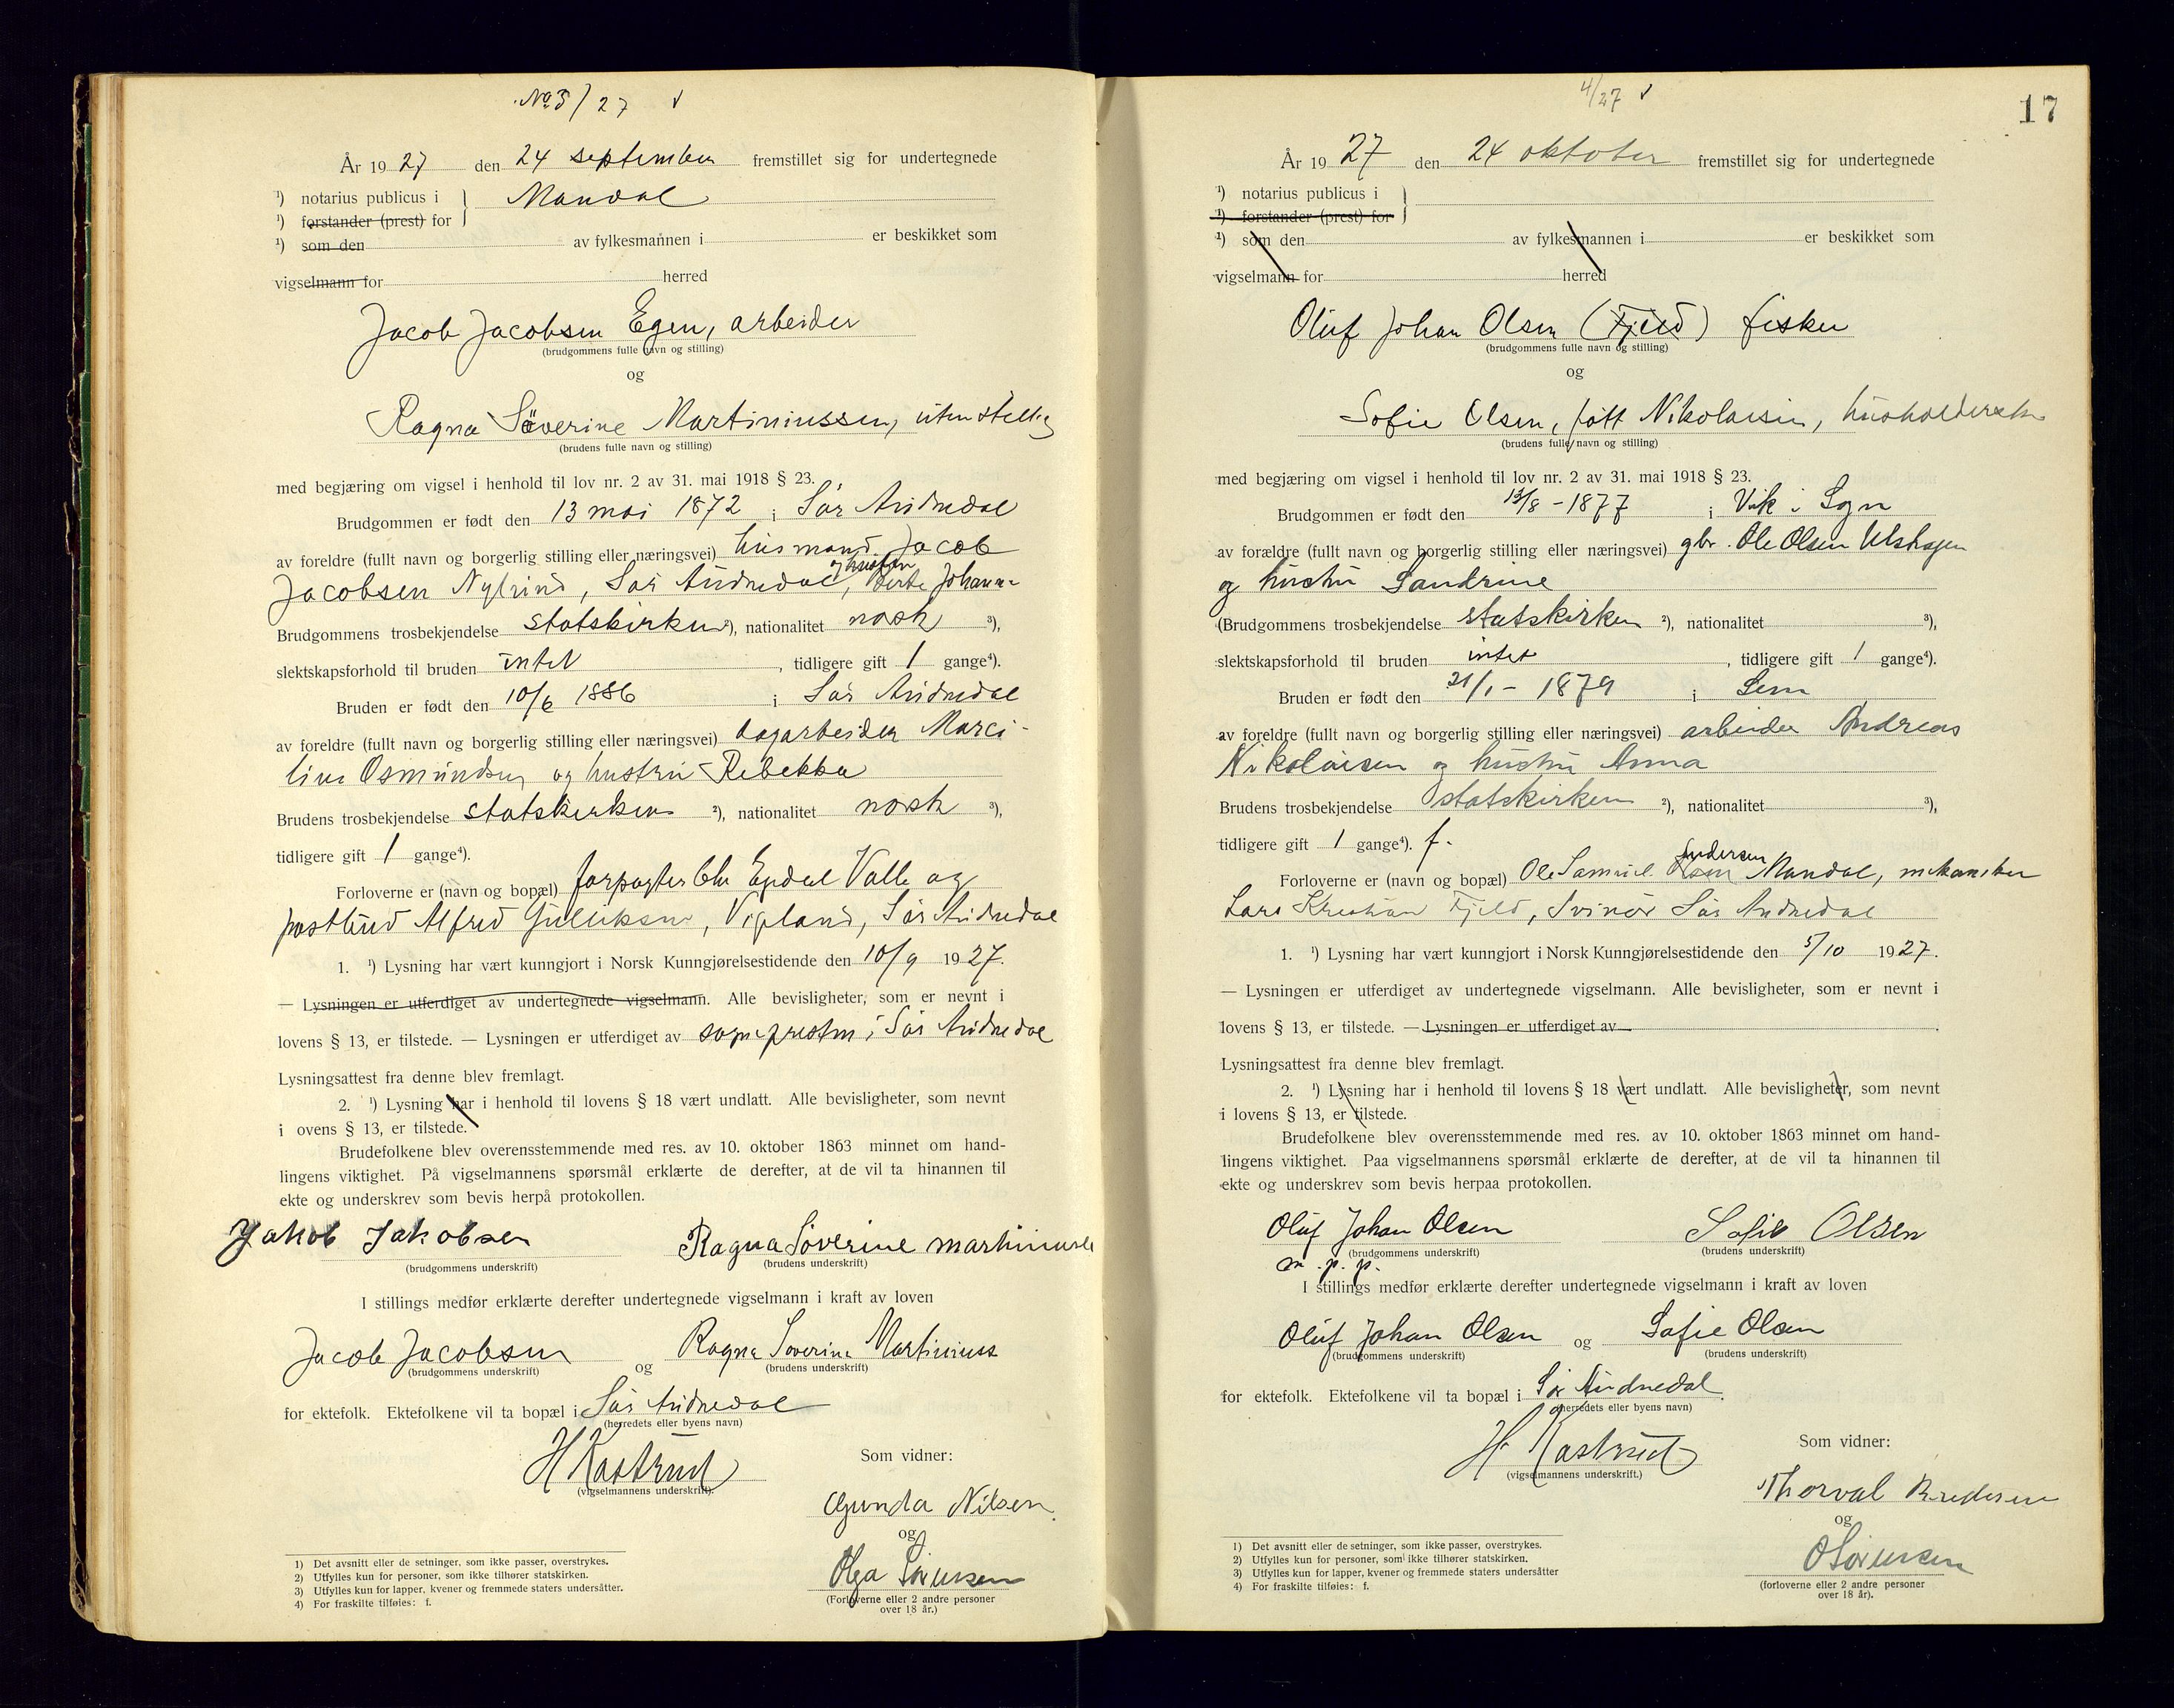 No 3/27 √
År 1927 den 24 september fremstillet sig for undertegnede
¹) notarius publicus i } Mandal
¹) forstander (prest) for
¹) som den av fylkesmannen i er beskikket som
vigselmann for herred
Jacob Jacobsen Egen, arbeider
(brudgommens fulle navn og stilling)
og
Ragna Söverine Martiniussen, uten stilling
(brudens fulle navn og stilling)
med begjæring om vigsel i henhold til lov nr. 2 av 31. mai 1918 § 23.
Brudgommen er født den 13 mai 1872 i Sör Audnedal
av foreldre (fullt navn og borgerlig stilling eller næringsvei) husmand Jacob
og hustru
Jacobsen, Sör Audnedal, Berte Johanne
Brudgommens trosbekjendelse statskirken ²), nationalitet norsk ³),
slektskapsforhold til bruden intet, tidligere gift 1 gange⁴).
Bruden er født den 10/6 1886 i Sör Audnedal
av foreldre (fullt navn og borgerlig stilling eller næringsvei) dagarbeider Marci-
lius Osmundsen og hustru Rebekka
Brudens trosbekjendelse statskirken ²), nationalitet norsk ³),
tidligere gift 1 gange⁴).
Forloverne er (navn og bopæl) forpagter Chr Egdal Valle og
postbud Alfred Gulliksen, Vigeland, Sör Audnedal
1. ¹) Lysning har vært kunngjort i Norsk Kunngjørelsestidende den 10/9 1927.
— Lysningen er utferdiget av undertegnede vigselmann. Alle bevisligheter, som er nevnt i
lovens § 13, er tilstede. — Lysningen er utferdiget av sognepresten i Sör Audnedal
Lysningsattest fra denne blev fremlagt.
2. ¹) Lysning har i henhold til lovens § 18 vært undlatt. Alle bevisligheter, som nevnt
i ovens § 13, er tilstede.
Brudefolkene blev overensstemmende med res. av 10. oktober 1863 minnet om hand-
lingens viktighet. På vigselmannens spørsmål erklærte de derefter, at de vil ta hinannen til
ekte og underskrev som bevis herpå protokollen.
Jakob Jakobsen Ragna Söverine Martiniussen
(brudgommens underskrift) (brudens underskrift)
I stillings medfør erklærte derefter undertegnede vigselmann i kraft av loven
Jacob Jacobsen og Ragna Soverine Martiniuss
(brudgommens underskrift) (brudens underskrift)
for ektefolk. Ektefolkene vil ta bopæl i Sör Audnedal
(herredets eller byens navn)
H Kastrud
(vigselmannens underskrift).
Som vidner:
Gunda Nilsen
og
Olga Sörensen
(Forloverne eller 2 andre personer
over 18 år.)
1) Det avsnitt eller de setninger, som ikke passer, overstrykes.
2) Utfylles kun for personer, som ikke tilhører statskirken.
3) Utfylles kun for lapper, kvener og fremmede staters undersåtter.
4) For fraskilte tilføies: f.
4/27 √
17
År 1927 den 24 oktober fremstillet sig for undertegnede
¹) notarius publicus i }
¹) forstander (prest) for
¹) som den av fylkesmannen i er beskikket som
vigselmann for herred
Oluf Johan Olsen (Fjeld) fisker
(brudgommens fulle navn og stilling)
og
Sofie Olsen, født Nikolaisen, husholderske
(brudens fulle navn og stilling)
med begjæring om vigsel i henhold til lov nr. 2 av 31. mai 1918 § 23.
Brudgommen er født den 13/8 - 1877 i Vik i Sogn
av forældre (fullt navn og borgerlig stilling eller næringsvei) gbr. Ole Olsen
og hustru Sandrine
(Brudgommens trosbekjendelse statskirken ²), nationalitet ³),
slektskapsforhold til bruden intet, tidligere gift 1 gange⁴).
Bruden er født den 21/1 - 1879 i Sem
av foreldre (fullt navn og borgerlig stilling eller næringsvei) arbeider Andreas
Nikolaisen og hustru Anna
Brudens trosbekjendelse statskirken ²), nationalitet ³),
tidligere gift 1 gange⁴). f.
Andersen
Forloverne er (navn og bopæl) Ole Samuel Olsen Mandal, mekaniker
Lars Kristian Fjeld, Svinör Sör Audnedal
1. ¹) Lysning har vært kunngjort i Norsk Kunngjørelsestidende den 5/10 1927.
— Lysningen er utferdiget av undertegnede vigselmann. Alle bevisligheter, som er nevnt i
lovens § 13, er tilstede. — Lysningen er utferdiget av
Lysningsattest fra denne blev fremlagt.
2. ¹) Lysning har i henhold til lovens § 18 vært undlatt. Alle bevisligheter, som nevnt
i lovens § 13, er tilstede.
Brudefolkene blev overensstemmende med res. av 10. oktober 1863 minnet om hand-
lingens viktighet. Paa vigselmannens spørsmål erklærte de derefter, at de vil ta hinannen til
ekte og underskrev som bevis herpaa protokollen.
Oluf Johan Olsen Sofie Olsen
(brudgommens underskrift) (brudens underskrift)
m.p.p.
I stillings medfør erklærte derefter undertegnede vigselmann i kraft av loven
Oluf Johan Olsen og Sofie Olsen
(brudgommens underskrift) (brudens underskrift)
for ektefolk. Ektefolkene vil ta bopæl i Sör Audnedal.
(herredets eller byens navn)
H. Kastrud
(vigselmannens underskrift.)
Som vidner:
Thorval
og
O Sörensen
(forloverne eller 2 andre personer
over 18 år).
1) Det avsnitt eller de setninger, som ikke passer, overstrykes.
2) Utfylles kun for personer, som ikke tilhører statskirken.
3) Utfylles kun for lapper, kvener og fremmede staters undersåtter
4) For fraskilte tilføies: f.